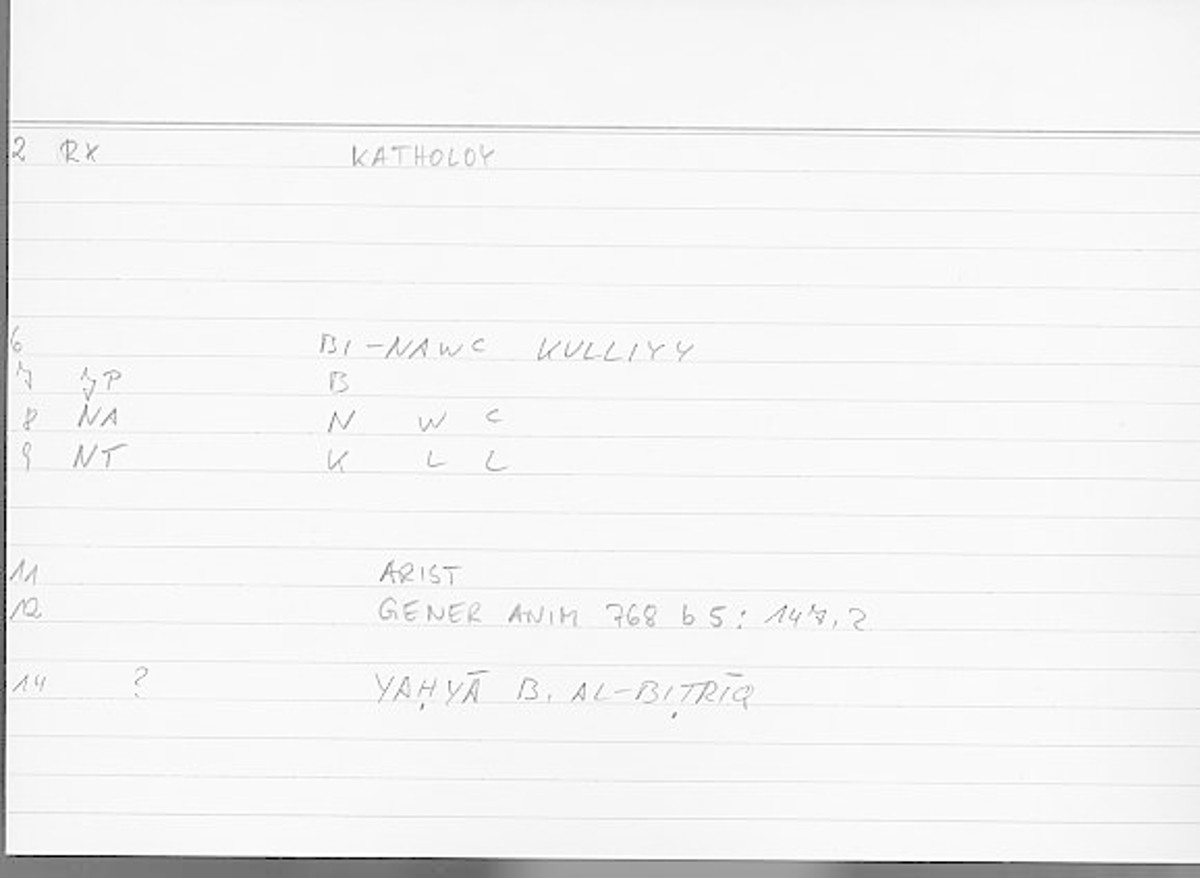 2 RX KATHOLOY
6 BI-NAWC KULLIYY
7 JP B
8 NA N W C
9 NT K L L
11 ARIST
12 GENER ANIM 768 b 5: 147,2
14 ? YAḤYĀ B. AL-BIṬRĪQ